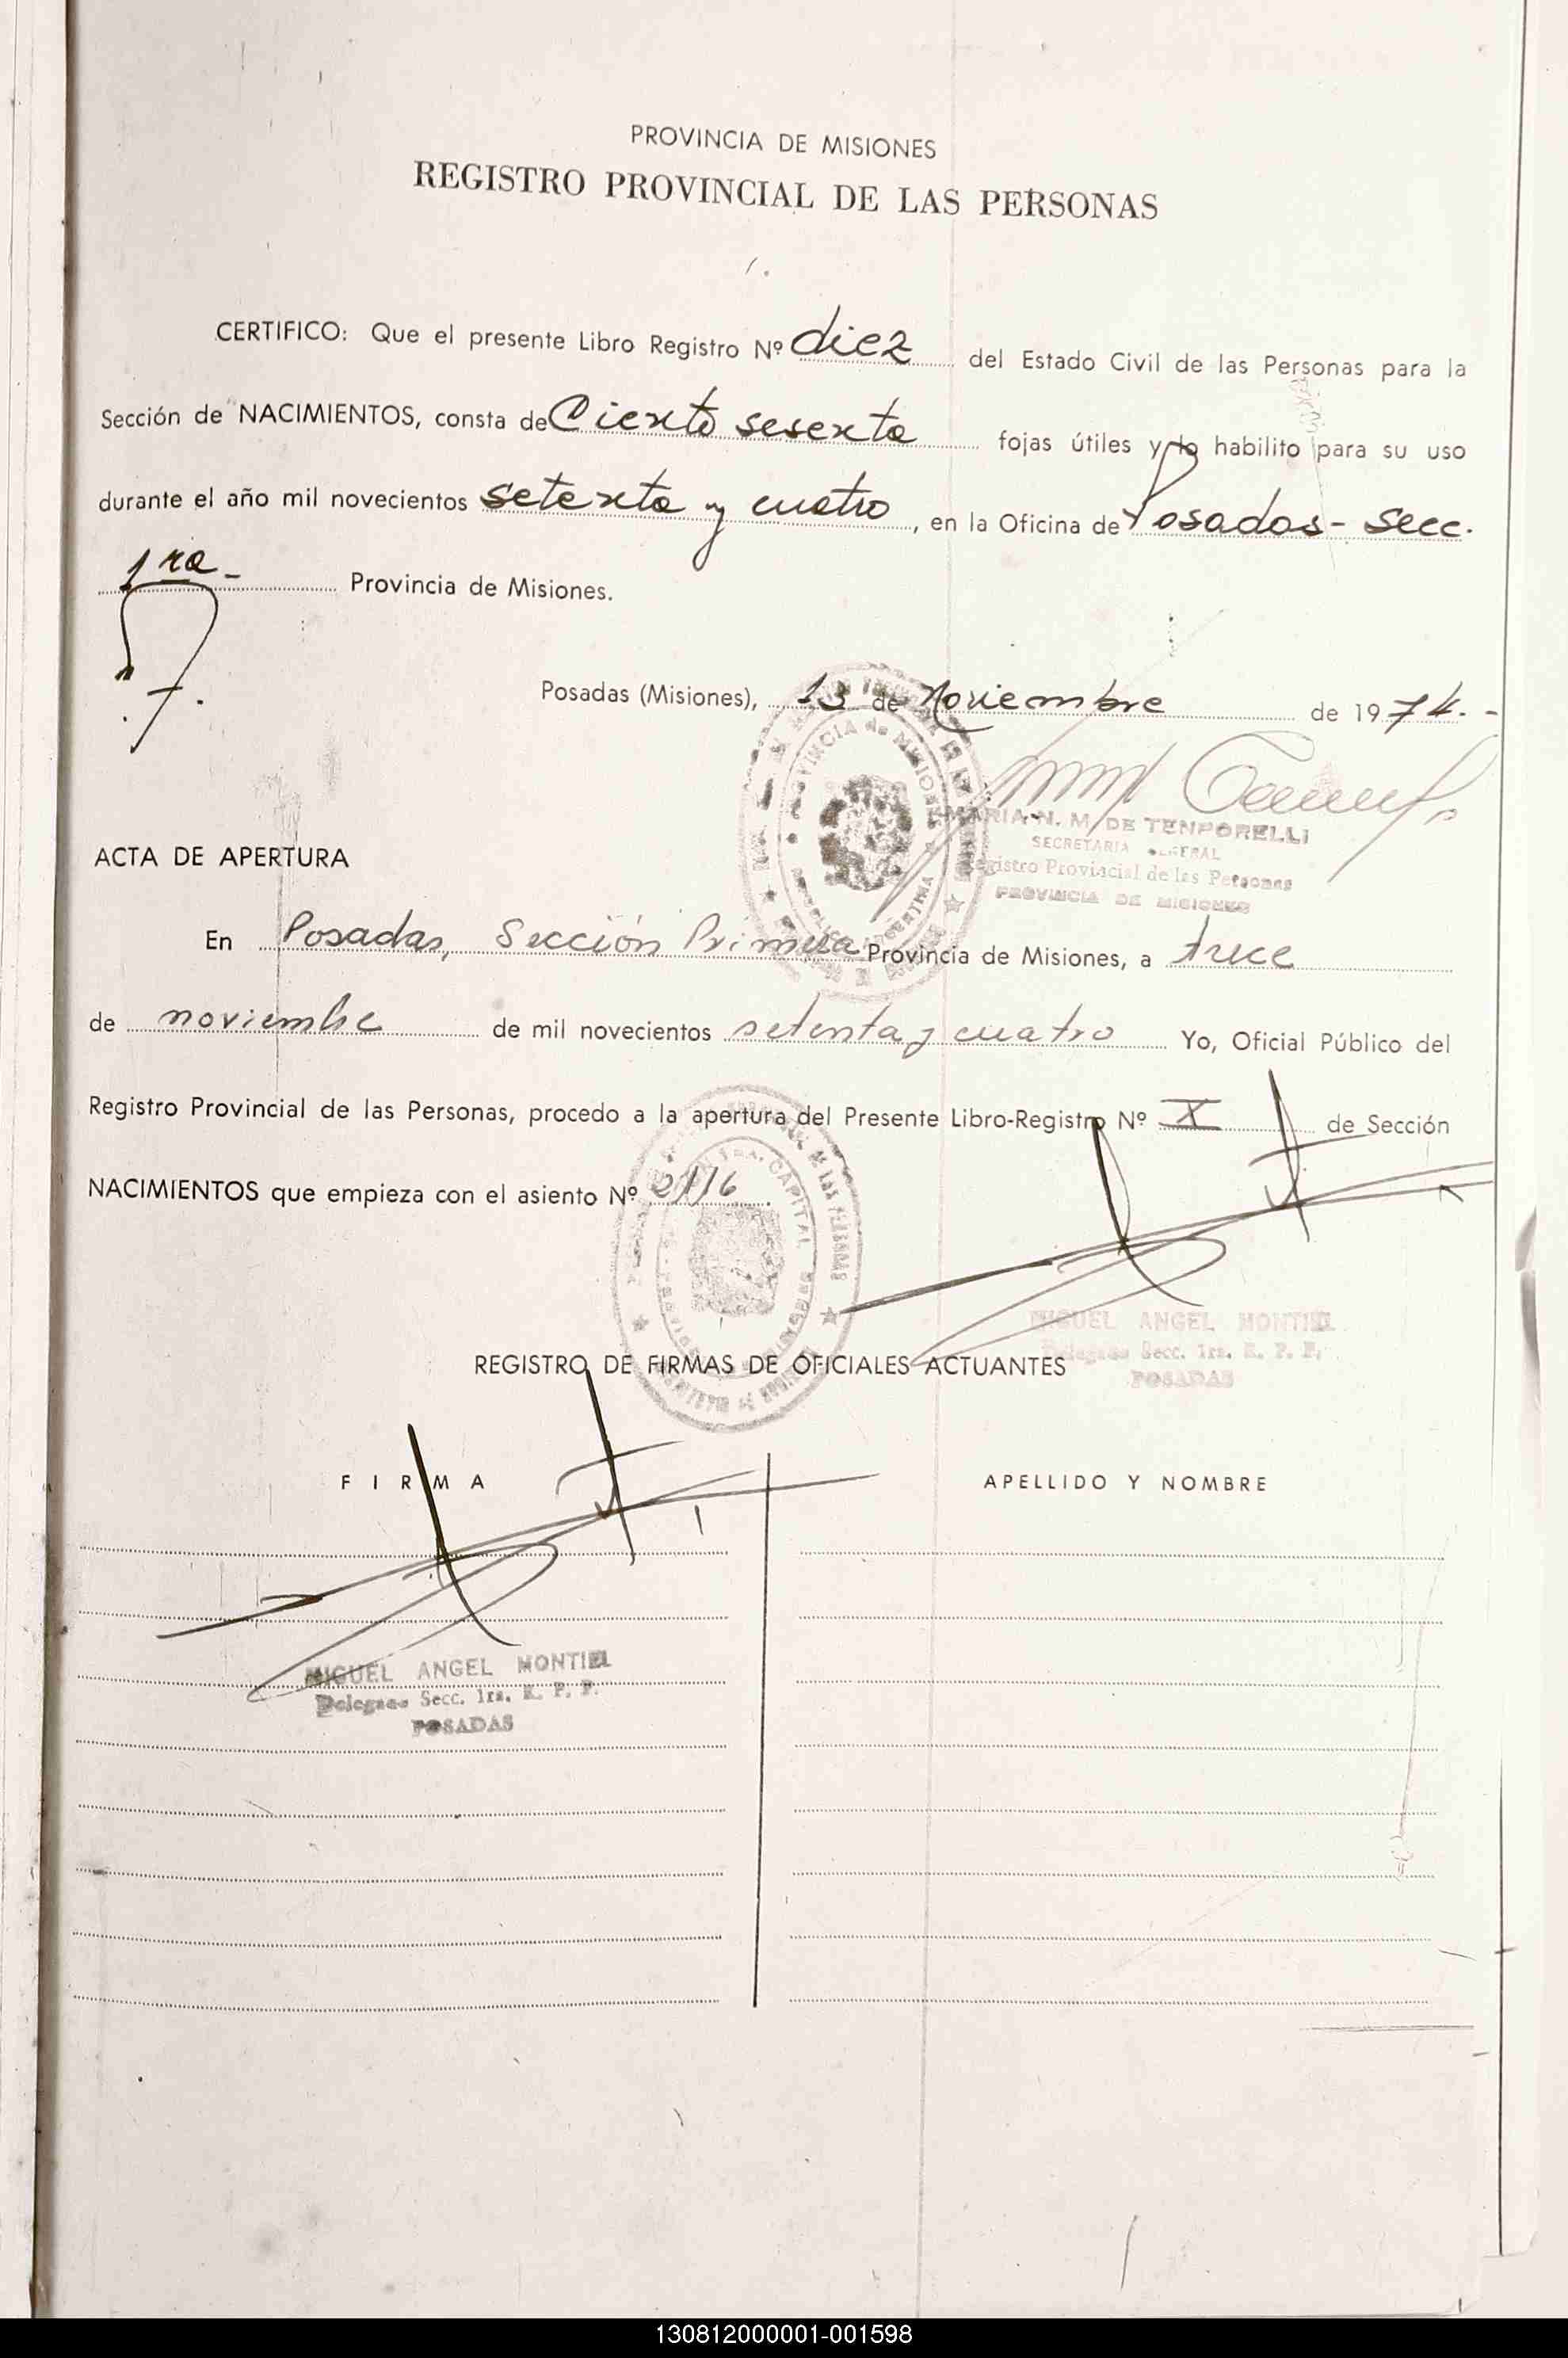 PROVINCIA DE MISIONES
REGISTRO PROVINCIAL DE LAS PERSONAS
CERTIFICO: Que el presente Libro Registro Nº diez del Estado Civil de las Personas para la
Sección de NACIMIENTOS, consta de Ciento sesenta fojas útiles y lo habilito para su uso
durante el año mil novecientos setenta y cuatro, en la Oficina de Posadas - Secc.
1ra - Provincia de Misiones.
Posadas (Misiones), 13 de Noviembre de 1974.-
MARIA N. M. DE TENPORELLI
SECRETARIA GENERAL
Registro Provincial de las Personas
PROVINCIA DE MISIONES
ACTA DE APERTURA
En Posadas, Sección Primera Provincia de Misiones, a trece
de noviembre de mil novecientos setenta y cuatro Yo, Oficial Público del
Registro Provincial de las Personas, procedo a la apertura del Presente Libro-Registro Nº X de Sección
NACIMIENTOS que empieza con el asiento Nº 2116.
MIGUEL ANGEL MONTIEL
Delegado Secc. 1ra. R. P. P.
POSADAS
REGISTRO DE FIRMAS DE OFICIALES ACTUANTES
FIRMA APELLIDO Y NOMBRE
MIGUEL ANGEL MONTIEL
Delegado Secc. 1ra. R. P. P.
POSADAS
130812000001-001598